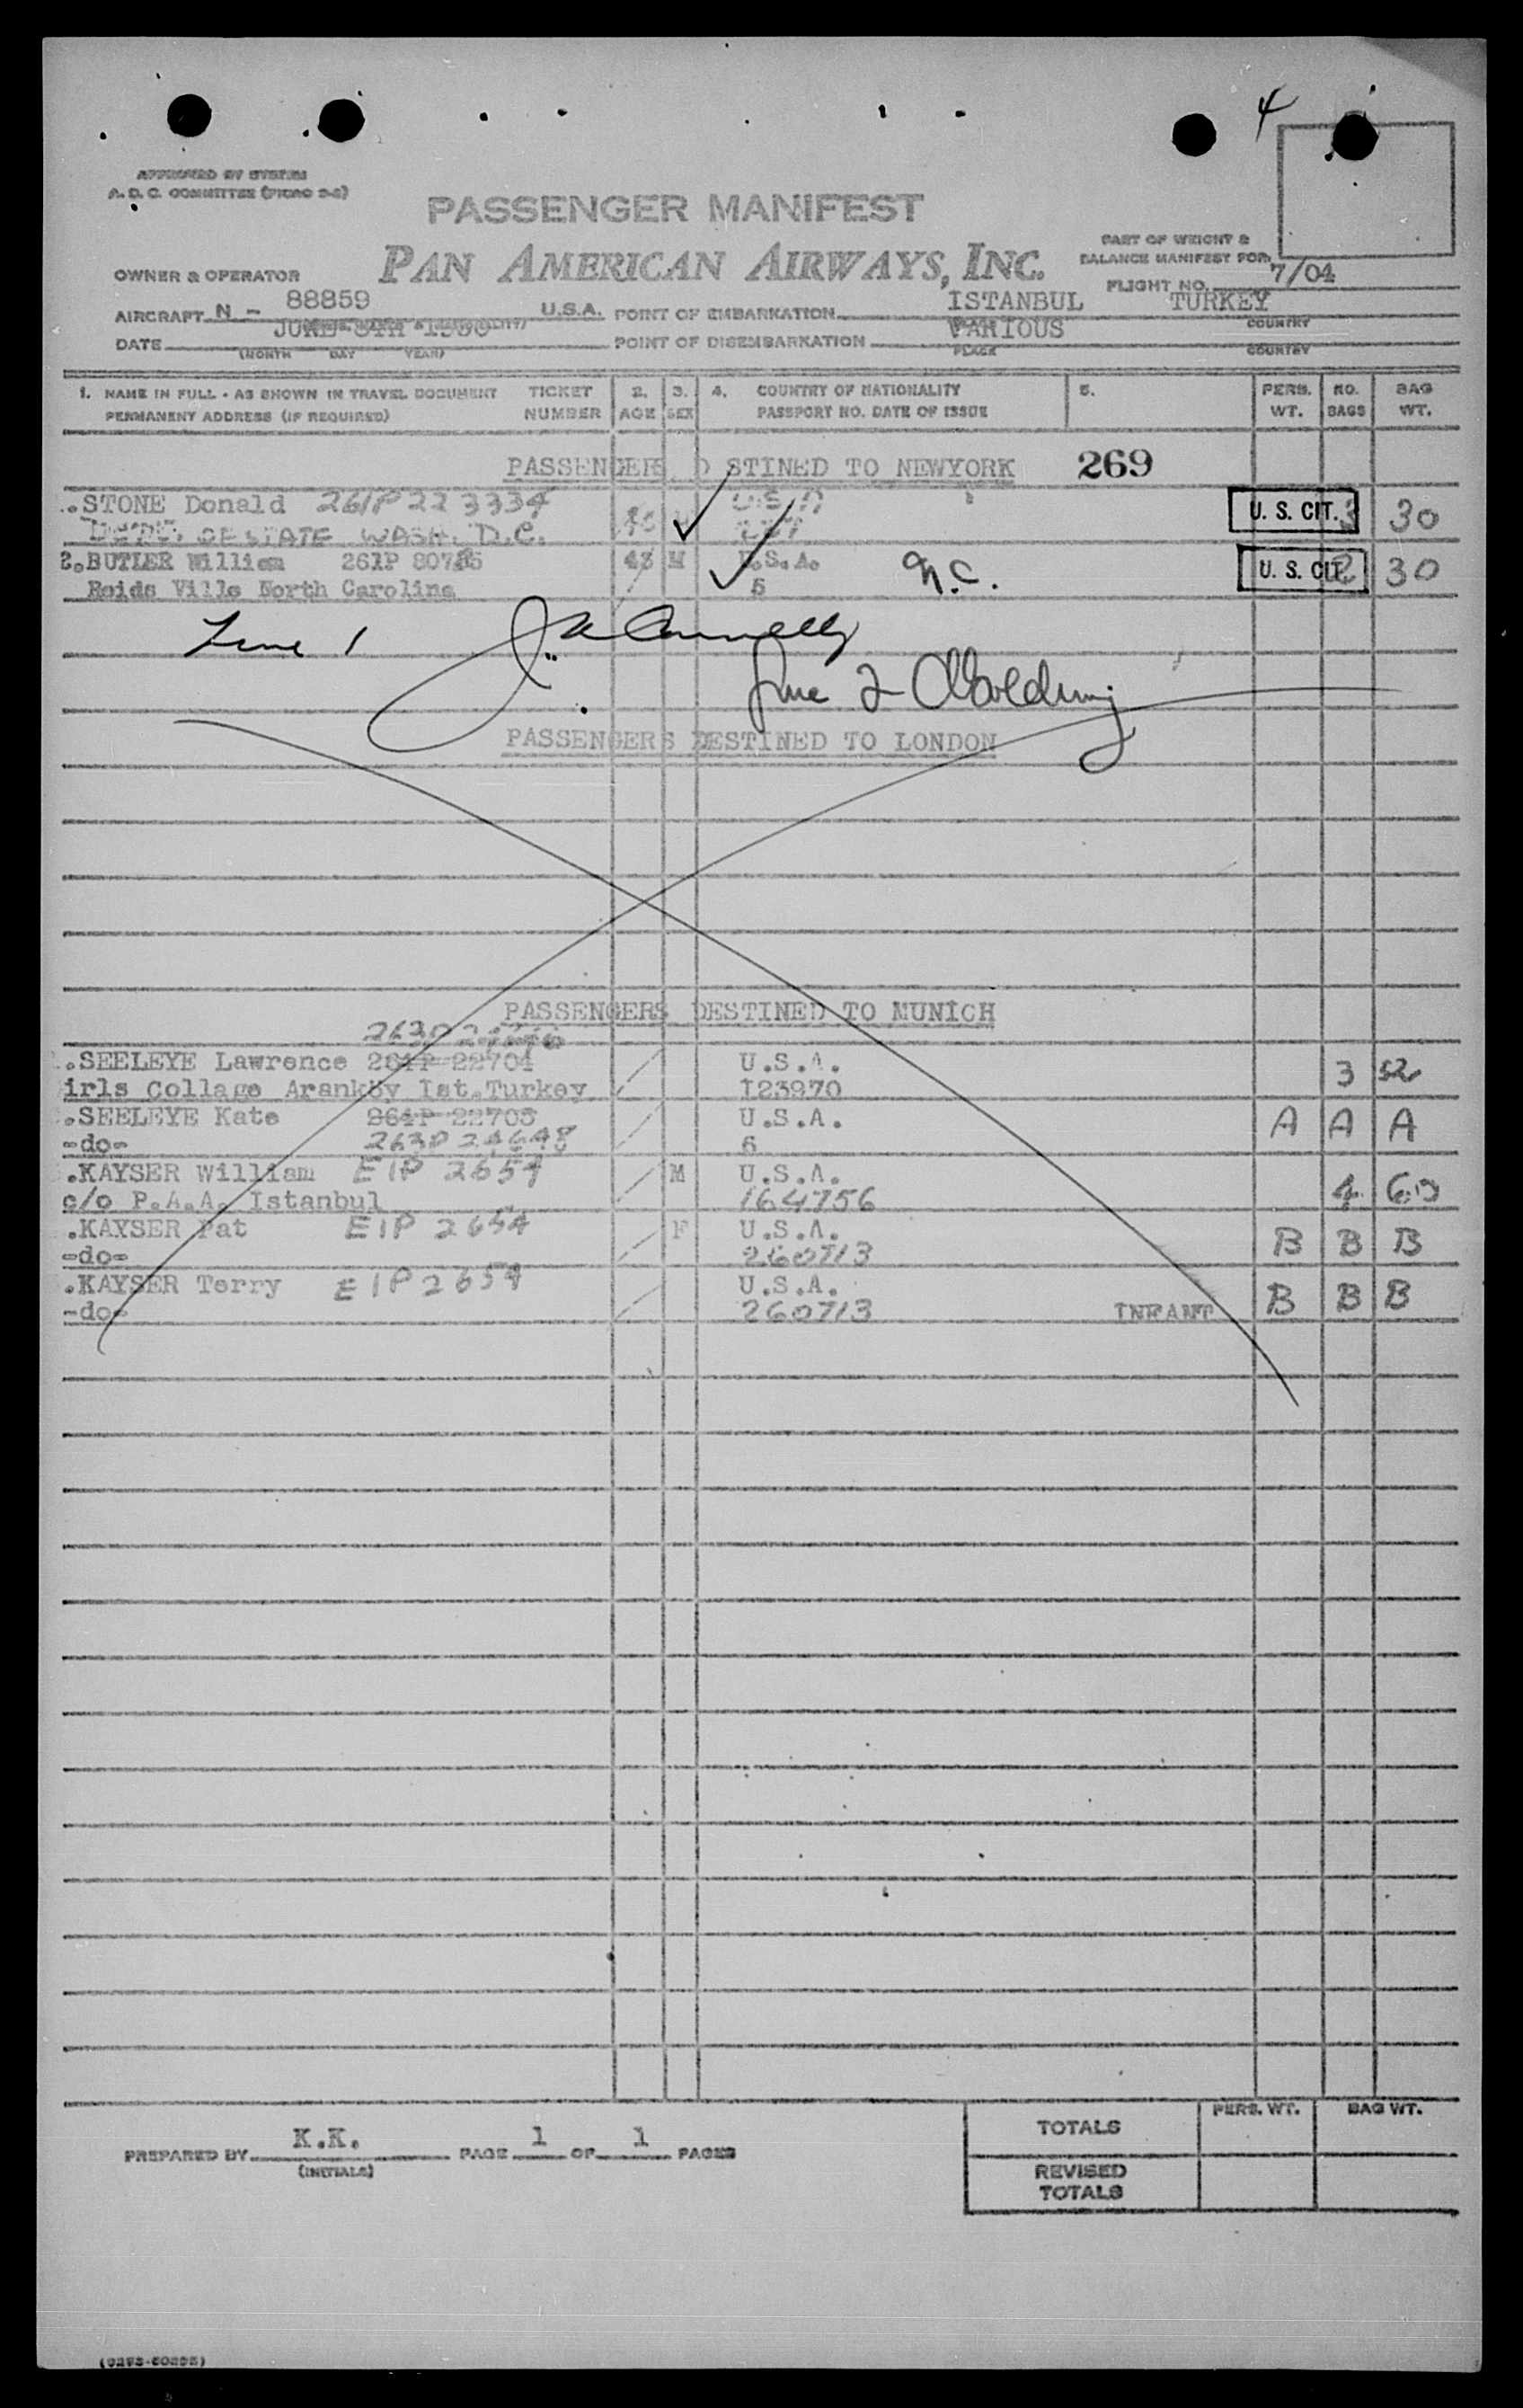 4
APPROVED BY SYSTEM
A. D. C. COMMITTEE
PASSENGER MANIFEST
PAN AMERICAN AIRWAYS, INC.
PART OF WEIGHT &
BALANCE MANIFEST FOR
FLIGHT NO. 7/04
OWNER & OPERATOR
AIRCRAFT N - 88859 U.S.A. POINT OF EMBARKATION ISTANBUL TURKEY
DATE JUNE 8TH POINT OF DISEMBARKATION VARIOUS
(MONTH DAY YEAR) PLACE COUNTRY
1. NAME IN FULL - AS SHOWN IN TRAVEL DOCUMENT TICKET 2. 3. 4. COUNTRY OF NATIONALITY 5. PERS. NO. BAG
PERMANENT ADDRESS (IF REQUIRED) NUMBER AGE SEX PASSPORT NO. DATE OF ISSUE WT. BAGS WT.
PASSENGERS D STINED TO NEWYORK 269
.STONE Donald 261P 22 3334 U.S.A U. S. CIT. 3 30
DEPT. OF STATE WASH. D.C.
2.BUTLER William 261P 43 M U.S.A. N.C. U. S. CIT. 2 30
Reids Ville North Carolina 5
Line 1
Line 2
PASSENGERS DESTINED TO LONDON
PASSENGERS DESTINED TO MUNICH
.SEELEYE Lawrence 261P 22704 U.S.A. 3 52
irls Collage Aranköy Ist.Turkey 123970
.SEELEYE Kate 261P 22705 U.S.A. A A A
-do- 263D 24648 5
.KAYSER William EIP 2654 M U.S.A. 4 60
c/o P.A.A. Istanbul 164756
.KAYSER Pat EIP 2654 F U.S.A. B B B
-do- 260713
.KAYSER Terry EIP 2654 U.S.A. B B B
-do- 260713 INFANT
PERS. WT. BAG WT.
TOTALS
PREPARED BY K.K. PAGE 1 OF 1 PAGES
(INITIALS)
REVISED
TOTALS